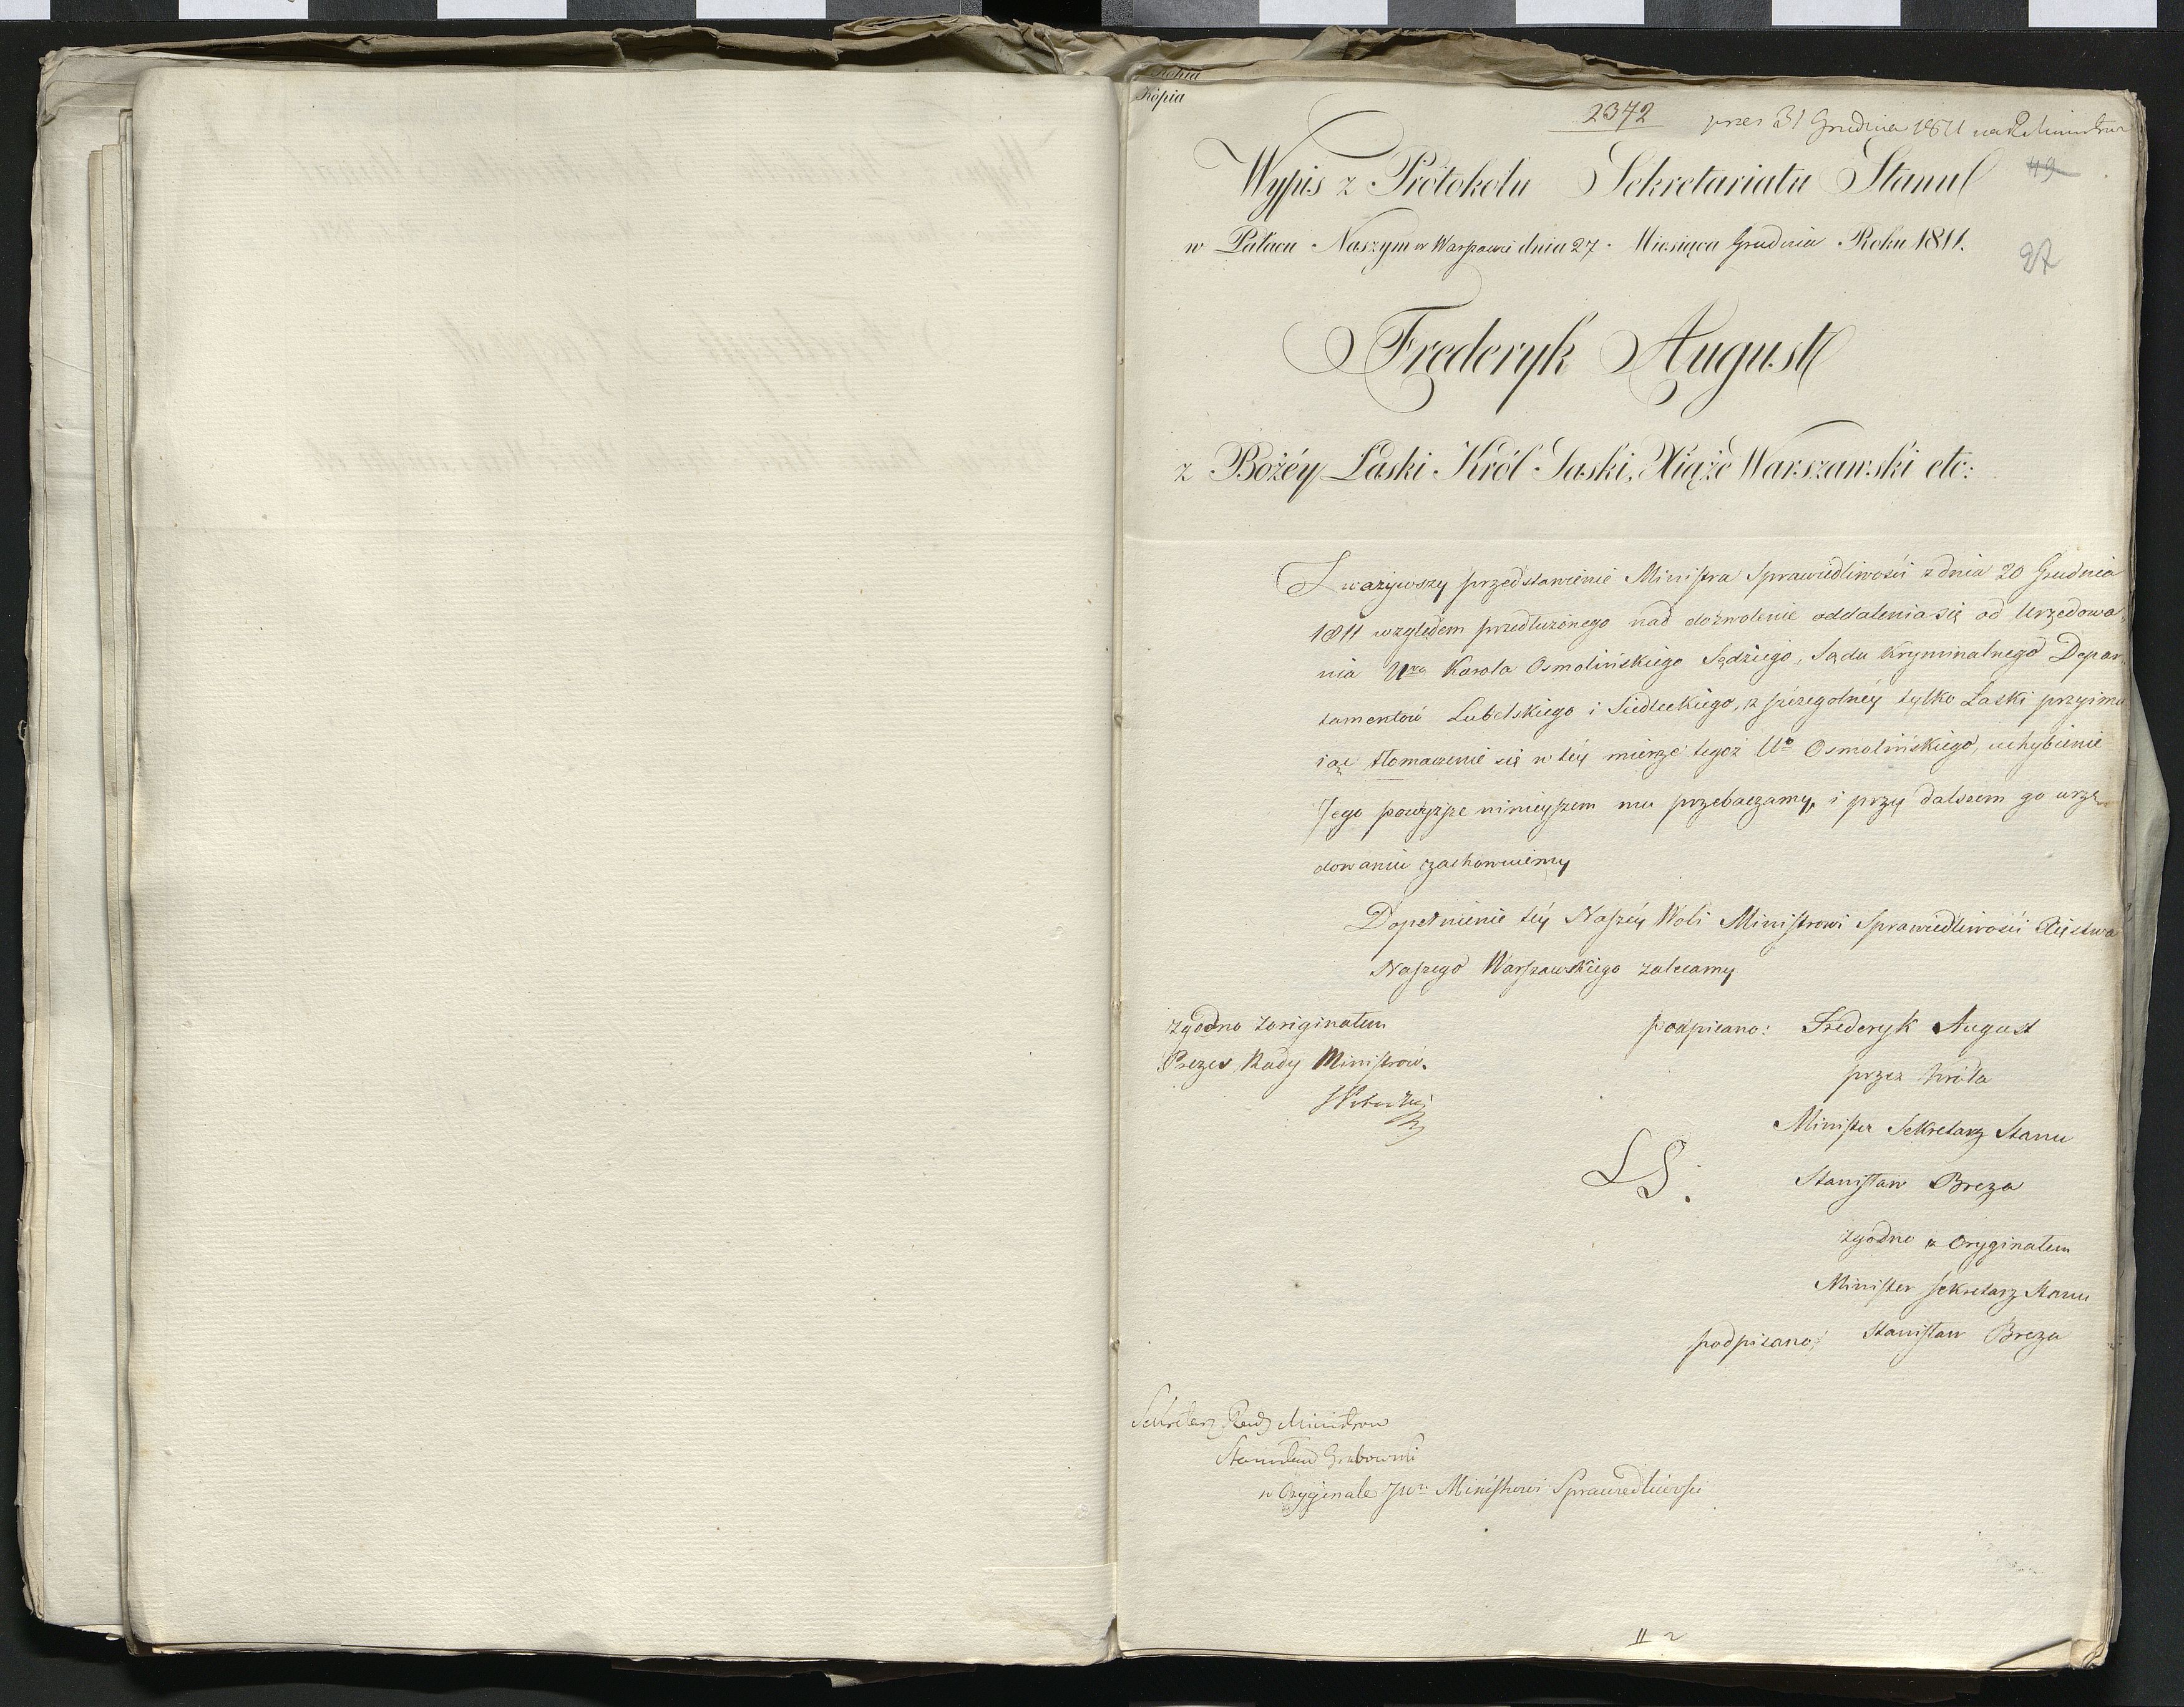 Kopia
Kopia
2372 prez 31 Grudnia 1811 na R Ministrów
Wypis z Protokolu Sekretariatu Stanu 49
w Pałacu Naszym w Warszawie dnia 27. Miesiąca Grudnia Roku 1811.
27
Frederyk August
z Bożéy Łaski Król Saski, Xiążę Warszawski etc:
Zważywszy przedstawienie Ministra Sprawiedliwości z dnia 20 Grudnia
1811 względem przedłużonego nad dozwolenie oddalenia się od Urzędowa,
nia Ur: Karola Osmolińskiego Sędziego, Sądu Kryminalnego Depar,
tamentów Lubelskiego i Siedleckiego, z szczególnéy tylko Łaski przyimu
iąc tłomaczenie się w téy mierze tegoż Uo Osmolińskiego, uchybienie
Jego powyższe ninieyszem mu przebaczamy, i przy dalszem go urzę
dowaniu zachowuiemy
Dopełnienie téy Naszéy Woli Ministrowi Sprawiedliwości Xięstwa
Naszego Warszawskiego zalecamy
zgodno z originałem
Prezes Rady Ministrów.
podpisano: Frederyk August
przez Króla
Minister Sekretarz Stanu
LS.
Stanisław Breza
zgodno z Oryginałem
Minister Sekretarz Stanu
podpisano: Stanisław Breza
Sekretarz Rady Ministrow
Stanisław Grabowski
w Oryginale JWu Ministrowi Sprawiedliwości